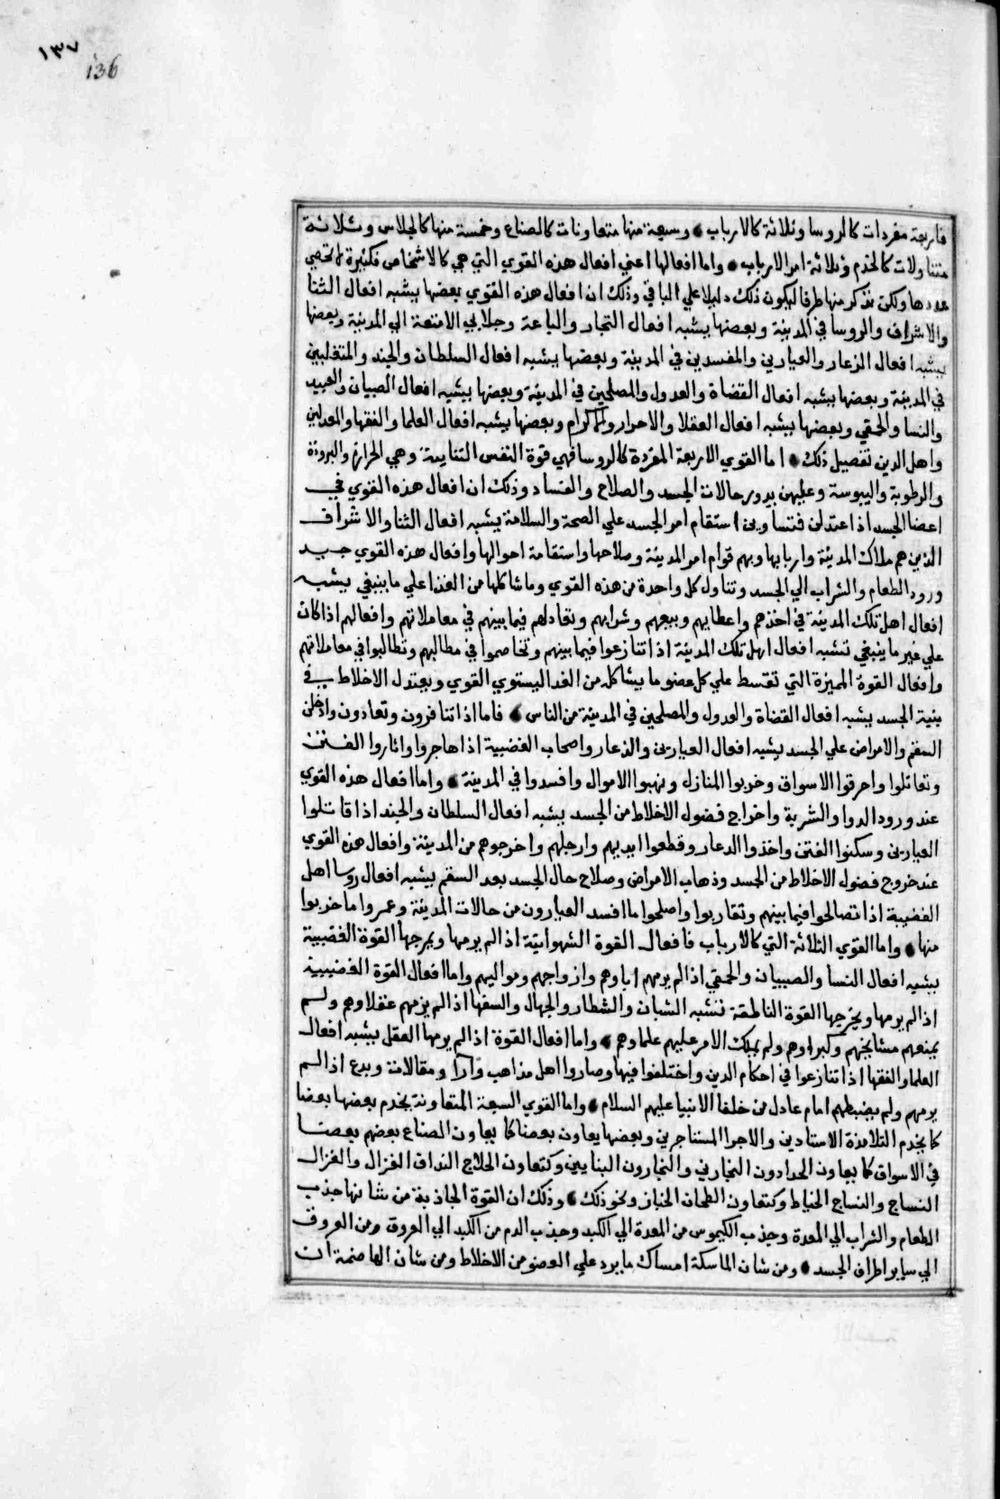 ١٣٧
136
فاربعة مفردات كالروسا وثلاثة كالارباب وسبعة منها متعاونات كالصناع وخمسة منها كالجلاس وثلاثة
متناولات كالخدم وثلاثة امر الارباب واما افعالها اعني افعال هذه القوي التي هي كالاشخاص فكثيرة لا تحصي
عددها ولكن نذكر منها طرفا ليكون ذلك دليلا علي الباقي وذلك ان افعال هذه القوي بعضها يشبه افعال الثنا
والاشراف والروسا في المدينة وبعضها يشبه افعال التجار والباعة وجلابي الامتعة الي المدينة وبعضها
يشبه افعال الزعار والعيارين والمفسدين في المدينة وبعضها يشبه افعال السلطان والجند والمتغلبين
في المدينة وبعضها يشبه افعال القضاة والعدول والمصلحين في المدينة وبعضها يشبه افعال الصبيان والعبيد
والنسا والحمقي وبعضها يشبه افعال العقلا والاحرار والكرام وبعضها يشبه افعال العلما والفقها والعدلين
واهل الدين تفصيل ذلك اما القوي الاربعة المفردة كالروسا فهي قوة النفس النباتية وهي الحرارة والبرودة
والرطوبة واليبوسة وعليهن يدور حالات الجسد والصلاح والفساد وذلك ان افعال هذه القوي في
اعضا الجسد اذا اعتدلن فتساوين استقام امر الجسد علي الصحة والسلامة يشبه افعال الثنا والاشراف
الذين هم ملاك المدينة واربابها وبهم قوام امر المدينة وصلاحها واستقامة احوالها وافعال هذه القوي جيد
ورود الطعام والشراب الي الجسد وتناول كل واحدة من هذه القوي وما شاكلها من الغذا علي ما ينبغي يشبه
افعال اهل تلك المدينة في اخذهم واعطايهم وبيعهم وشرايهم وتعادلهم فيما بينهم في معاملاتهم وافعالهم اذا كان
علي غير ما ينبغي تشبه افعال اهل تلك المدينة اذا تنازعوا فيما بينهم وتخاصموا في مطالبهم وتطالبوا في معاملاتهم
وافعال القوة المميزة التي تقسط علي كل عضو ما يشاكله من الغدا ليستوي القوي ويعتدل الاخلاط في
بنية الجسد يشبه افعال القضاة والعدول والمصلحين في المدينة من الناس فاما اذا تنافرون وتعادون وادخلن
السقم والامراض علي الجسد يشبه افعال العيارين والذعار واصحاب الغضبية اذا هاجروا واثاروا الفتن
وتقاتلوا واحرقوا الاسواق وخربوا المنازل ونهبوا الاموال وافسدوا في المدينة واما افعال هذه القوي
عند ورود الدوا والشربة واخراج فضول الاخلاط من الجسد يشبه افعال السلطان والجند اذا قاتلوا
العيارين وسكنوا الفتن واخذوا الدعار وقطعوا ايديهم وارجلهم واخرجوهم من المدينة وافعال هذه القوي
عند خروج فضول الاخلاط من الجسد وذهاب الامراض وصلاح حال الجسد بعد السقم يشبه افعال روسا اهل
الغضبية اذا تصالحوا فيما بينهم وتقاربوا واصلحوا ما افسد العيارون من حالات المدينة وعمروا ما خربوا
منها واما القوي الثلاثة التي كالارباب فافعال القوة الشهوانية اذ الم يزمها ويمزجها القوة الغضبية
يشبه افعال النسا والصبيان والحمقي اذ الم يزمهم اباوهم وازواجهم ومواليهم واما افعال القوة الغضبية
اذ الم يزمها ويخرجها القوة الناطقة تشبه الشبان والشطار والجهال والسفها اذ الم يزمهم عقلاوهم ولم
يمنعهم مشايخهم وكبراوهم ولم يملك الامر عليهم علماوهم واما افعال القوة اذ الم يزمها العقل يشبه افعال
العلما والفقها اذا تنازعوا في احكام الدين واختلفوا فيها وصاروا اهل مذاهب وآرا ومقالات وبدع اذ الم
يزمهم ولم يضبطهم امام عادل من خلفا الانبيا عليهم السلام واما القوي السبعة المتعاونة يخدم بعضها بعضا
كما يخدم التلامذة الاستادين والاجرا المستاجرين وبعضها يعاون بعضا كما يعاون الصناع بعضهم بعضا
في الاسواق كما يعاون الحدادون النجارين والنجارون البنايين وكتعاون الحلاج النداف الغزال والغزال
النساج والنساج الخياط وكتعاون الطحان الخباز ونحو ذلك وذلك ان القوة الجاذبة من شانها جذب
الطعام والشراب الي المعدة وجذب الكيموس من المعدة الي الكبد وجذب الدم من الكبد الي العروق ومن العروق
الي ساير اطراف الجسد ومن شان الماسكة امساك ما يرد علي العضو من الاخلاط ومن شان الهاضمة ان